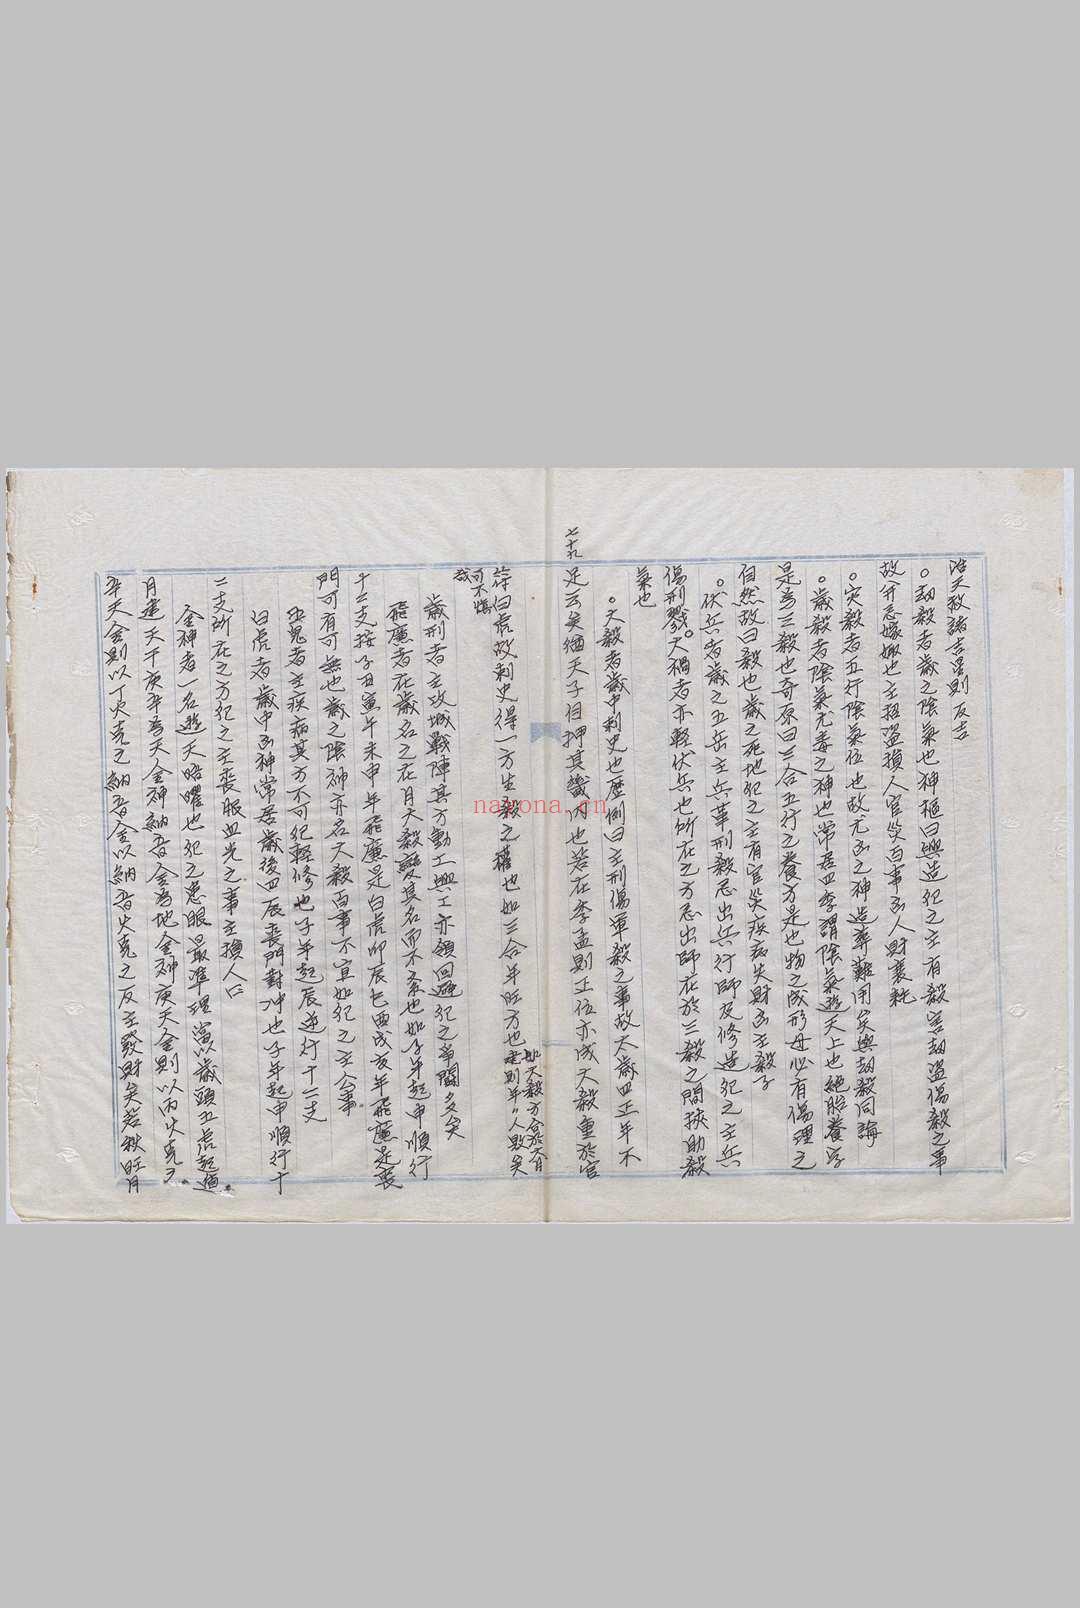 治天赦諸吉星則反吉
。劫殺者歲之陰氣也神樞曰興造犯之主有殺害劫盜傷殺之事
故并忌嫁娶也主招盜損人官災百事凶人財衰耗
。災殺者五行陰氣位也故尤凶之神造葬難用矣與劫殺同論
。歲殺者陰氣尤毒之神也常居四季謂陰氣遊天上也絕胎養字
是為三殺也奇原曰三合五行之養方是也物之成形母必有傷理之
自然故曰殺也歲之死地犯之主有官災疾病失財凶主殺子
。伏兵者歲之五岳主兵革刑殺忌出兵行師及修造犯之主兵
傷刑戮。大禍者亦輕伏兵也所在之方忌出師在於三殺之間挾助殺
氣也
。大殺者歲中刺史也歷例曰主刑傷軍殺之事故大歲四正年不
七十九
足云矣猶天子自押其畿內也若在季孟則正伍亦成大殺重於官
符白虎故刺史得一方生殺之權也如三合年旺方也
如大殺方合於大月
建則年人敗矣
可不慎
哉
歲刑者主攻城戰陣其方動工興工亦領回避犯之爭鬪多矣
飛廉者在歲名之在月大殺變其名而不系也如子年起申順行
十二支按子丑寅午未申年飛廉是白虎卯辰巳酉戌亥年飛廉是喪
門可有可無也歲之陰神亦名大殺百事不宜如犯之主人公事
五鬼者主疾病其方不可犯輕修也子年起辰逆行十二支
白虎者歲中凶神常居歲後四辰喪門對冲也子年起申順行十
二支所在之方犯之主喪服血光之事主損人口
金神者一名遊天晤曜也犯之患眼最準理當以歲頭五虎起遁
月建天干庚辛為天金神納音金為地金神庚天金則以丙火克之
辛天金則以丁火克之納音金以納音火克之反主發財矣若秋旺月
nayona.cn